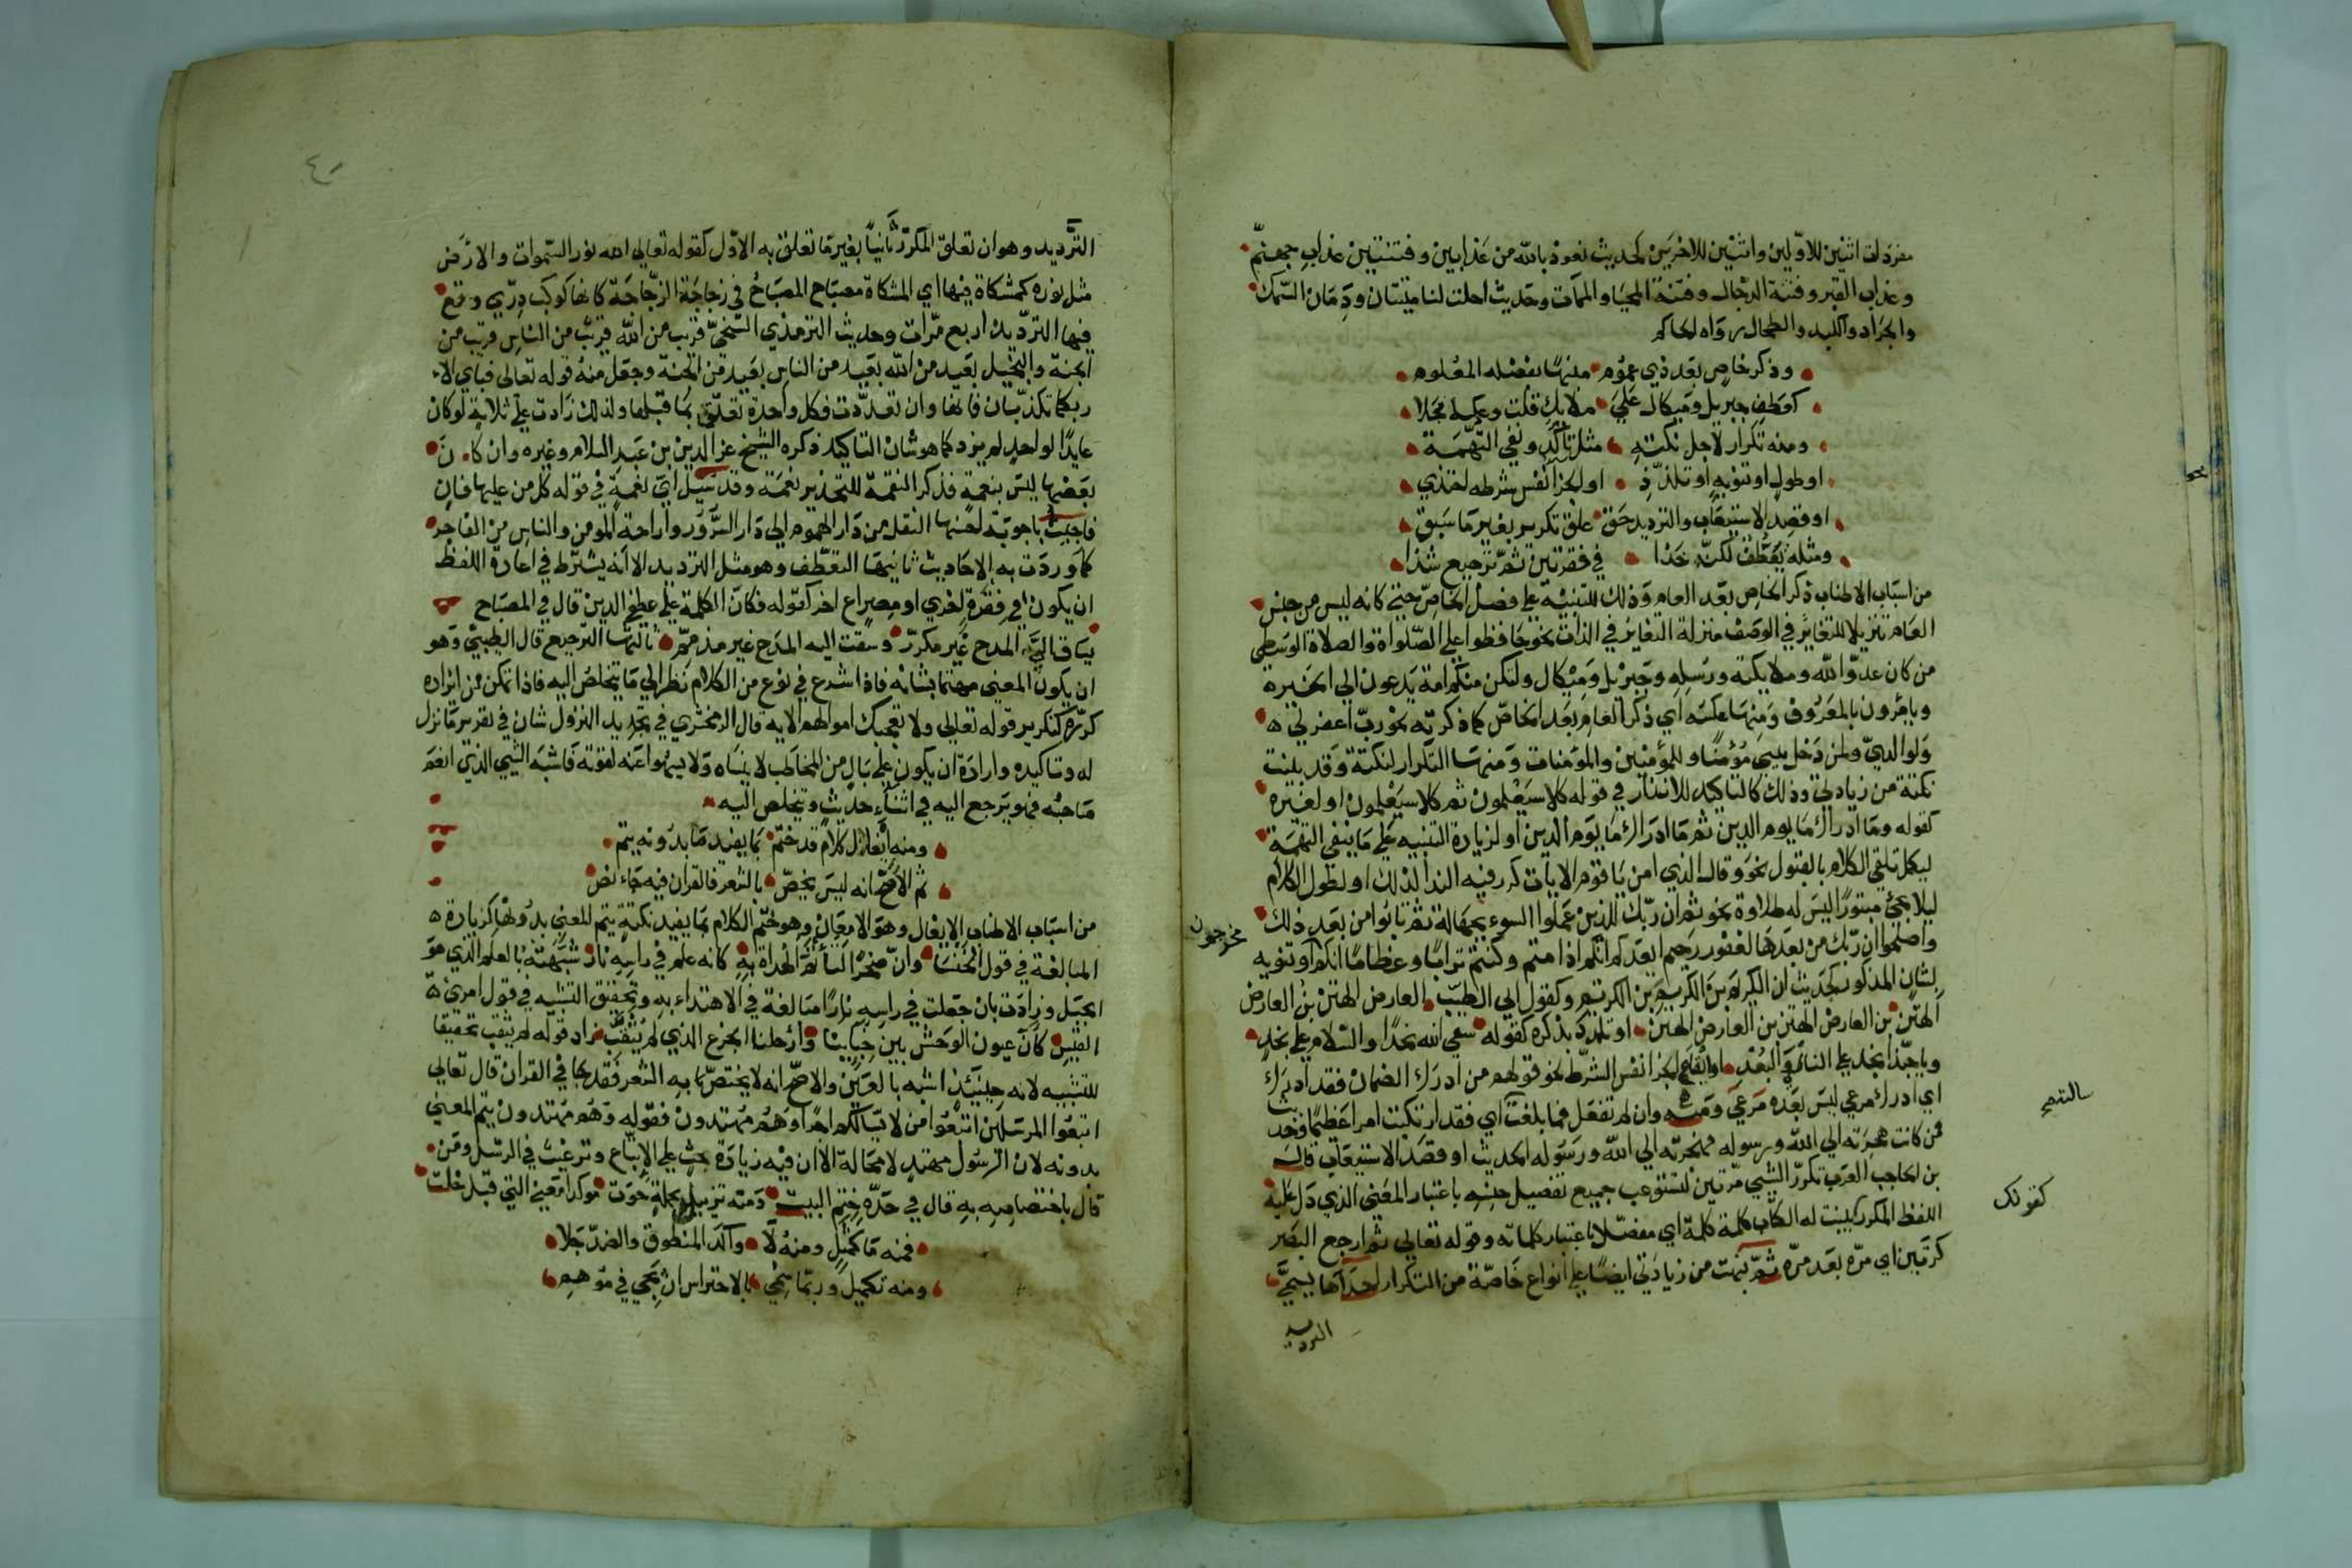 مفردات اثنين للاوّلين واثنين للاخرين كحديث نعوذ بالله من عذابين وفتنتين عذاب جهنّم
وعذاب القبر وفتنة الدجال وفتنة المحيا والممات وحديث احلت لنا ميتتان ودمان السّمك
والجراد والكبد والطحال رواه الحاكم
وذكر خاص بعد ذي عموم منبهًا بفضله المعلوم
كعطف جبريل وميكال على ملايك قلت وعكسه جلا
ومنه تكرار لاجل نكتة مثل تأكّد ونفي التهمة
او طول او تنويه او تلذّذ او لجزا نفس شرطه احتذي
او قصد الاستيعاب والترديد حق علق تكرير بغير ما سبق
ومثله تعطّف لكنّه خذا في فقرتين ثمّ ترجيع شذا
من اسباب الاطناب ذكر الخاص بعد العام وذلك للتنبيه على فضل الخاصّ حتى كانه ليس من جنس
العام تنزيلا للتغاير في الوصف منزلة التغاير في الذات نحو حافظوا على الصّلواة والصلاة الوسطى
من كان عدوّا لله وملايكته ورسله وجبريل وميكال ولتكن منكم امة يدعون الى الخير ه
ويامرون بالمعروف ومنها عكسه اي ذكر العام بعد الخاصّ كما ذكرته نحو ربّ اغفر لي ه
ولوالديّ ولمن دخل بيتي مؤمنًا وللمؤمنين والمؤمنات ومنها التكرار لنكتة وقد بينت
نكتته من زيادتي وذلك كالتاكيد للانذار في قوله كلا سيعلمون ثم كلا سيعلمون او لغيره
كقوله وما ادراك ما يوم الدين ثم ما ادراك ما يوم الدين او لزيادة التنبيه على ما ينفي التهمة
ليكمل تلقي الكلام بالقبول نحو وقال الذي امن يا قوم الايات كرر فيه الندا لذلك او لطول الكلام
ليلا يجئ مبتورًا ليس له طلاوة نحو ثم ان ربّك للذين عملوا السوء بجهالة ثم تابوا من بعد ذلك
واصلحوا ان ربّك من بعدها لغفور رحيم ايعدكم انكم اذا متم وكنتم ترابًا وعظامًا انكم او تنويه
مخرجون
بشان المذكور كحديث ان الكريم بن الكريم بن الكريم وكقول ابي الطيب العارض الهتن بن العارض
الهتن بن العارض الهتن بن العارض الهتن او تلذذ بذكره كقوله سقى الله نجدًا والسلام على نجد
ويا حبّذا نجد على الناي والبعد او ايقاع لجزا نفس الشرط نحو قولهم من ادرك الضمان فقد ادرك
بالتنبيه
اي ادرك مرعي ليس بعده مرعي ومنه وان لم تفعل فما بلغت اي فقد ارتكبت امرا عظيمًا وحديث
فمن كانت هجرته الى الله ورسوله فهجرته الى الله ورسوله الحديث او قصد الاستيعاب قال
بن الحاجب العرب تكرّر الشيئ مرّتين لتستوعب جميع تفصيل جنسه باعتبار المعنى الذي دل عليه
كقولك
اللفظ المكرر كبينت له الكتاب كلمة كلمة اي مفصّلا باعتبار كلماته وقوله تعالى ثم ارجع البصر
كرتين اي مرّة بعد مرّة ثم نبهت من زيادتي ايضًا على انواع خاصّة من التكرار احداها يسمى
الترديد
٤٠
الترديد وهو ان تعلق المكرّر ثانيًا بغير ما تعلق به الاوّل كقوله تعالى الله نور السّموات والارض
مثل نوره كمشكاة فيها اي المشكاة مصباح المصباح في زجاجة الزجّاجة كانها كوكب درّي وقع
فيها الترديد اربع مرّات وحديث الترمذي السّخيّ قريب من الله قريب من الناس قريب من
الجنة والبخيل بعيد من الله بعيد من الناس بعيد من الجنة وجعل منه قوله تعالى فباي الاء
ربكما تكذّبان فانها وان تعدّدت فكل واحدة تعلّق بما قبلها ولذلك زادت على ثلاثة لو كان
عايدًا لواحد لم يزد كما هو شان التاكيد ذكره الشيخ عز الدين بن عبد السلام وغيره وان كا ن
بعضها ليس بنعمة فذكر النقمة للتحذير نعمة وقد سيل اي نعمة في قوله كل من عليها فان
فاجبت باجوبة احسنها النقل من دار الهموم الى دار السّرور واراحة المومن والناس من الفاجر
كما وردت به الاحاديث ثانيها التعطّف وهو مثل الترديد الا انه يشترط في اعادة اللفظ
ان يكون في فقرة اخرى او مصراع اخر كقوله فكان الكلمة على عطف الدين قال في المصباح
يساق اليّ المدح غير مكرّر وسقت اليه المدح غير مذمّم ثالثها الترجيع قال الطيبي وهو
ان يكون المعنى مهتما بشانه فاذا شرع في نوع من الكلام نظر الى ما يتخلص اليه فاذا تمكن من ايراده
كرّره كتكرير قوله تعالى ولا تعجبك اموالهم الاية قال الزمخشري في تجديد النزول شان في تقرير ما نزل
له وتاكيده وارادة ان يكون على بال من المخاطب لا ينساه ولا يسهو عنه لقوته فاشبه الشيئ الذي اهم
صاحبه فهو يرجع اليه في اثناء حديث ويتخلص اليه
ومنه ايغال كلام قد ختم بما يفيد ما بدونه يتم
ثم الاصحّ انه ليس يخصّ بالشعر فالقران فيه جاء نص
من اسباب الاطناب الايغال وهو الامعان وهو ختم الكلام بما يفيد نكتة يتم المعنى بدونها كزيادة ه
المبالغة في قول الخنسا وانّ صخرًا لتأتمّ الهداة به كانه علم في راسه نار شبهته بالعلم الذي هو
الجبل وزادت بان جعلت في راسه نارًا مبالغة في الاهتداء به وتحقيق التشبيه في قول امرئ ه
القيس كان عيون الوحش بين خبائنا وارحلنا الجزع الذي لم يثقّب زاد قوله لم يثقب تحقيقا
للتشبيه لانه حينئذ اشبه بالعين والاصحّ انه لا يختصّ به الشعر فقد جا في القران قال تعالى
اتبعوا المرسلين اتبعوا من لا يسالكم اجرا وهم مهتدون فقوله وهم مهتدون يتم المعنى
بدونه لان الرسول مهتد لا محالة الا ان فيه زيادة حث على الاتباع وترغيب في الرسل ومن
قال باختصاصه به قال في حدّه ختم البيت ومنه تذييل بجملة حوت موكدا معنى التي قبل خلت
فمنه ما كمثل ومنه لا وآكد المنطوق والضدّ جلا
ومنه تكميل وربّما سمي بالاحتراس ان يجي في موهم